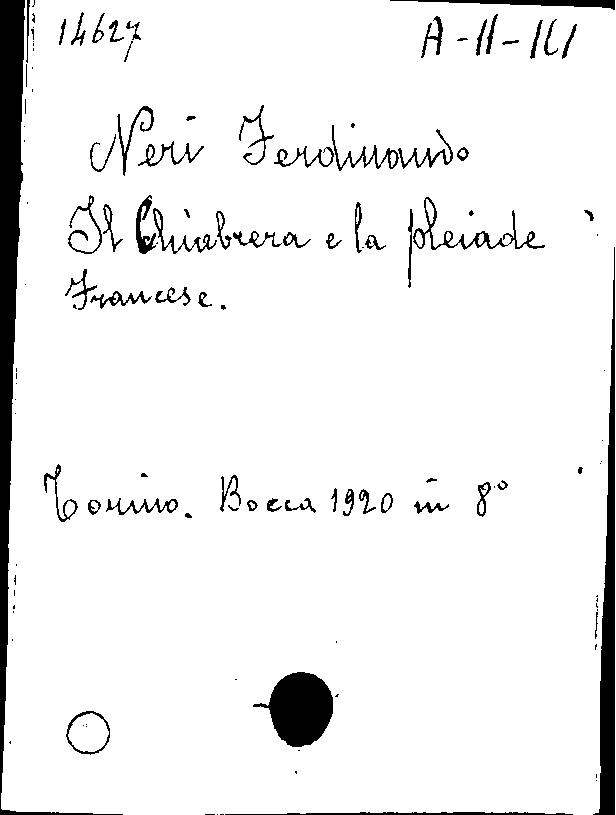 14627
A-II-III
Neri Ferdinando
Il Chiabrera e la pleiade
Francese.
Torino. Bocca 1920 in 8°